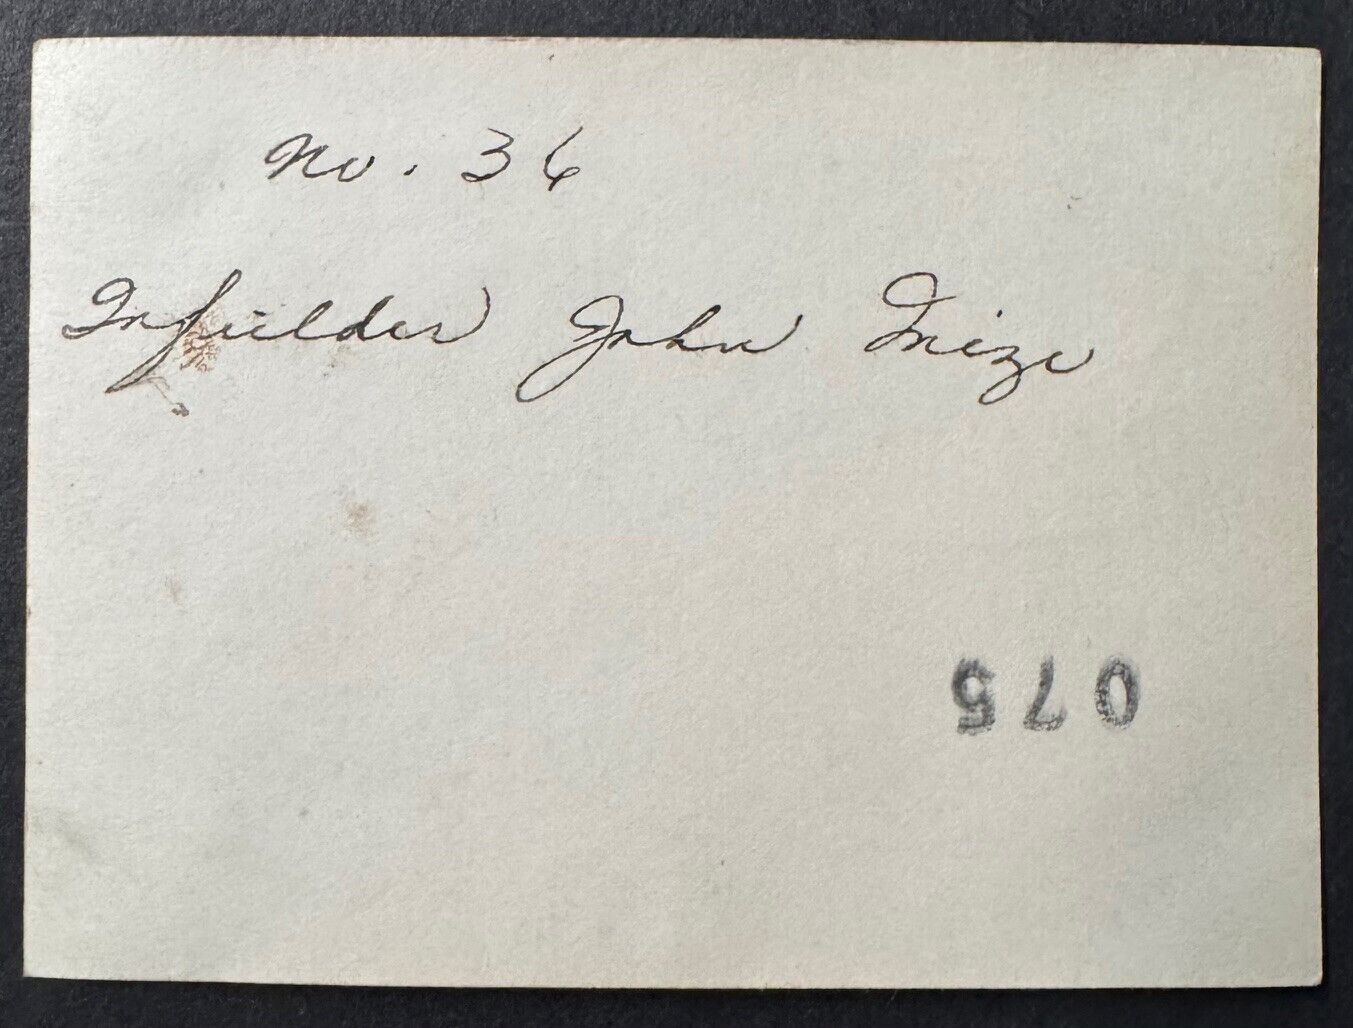 No. 36
Infielder John Mize
075